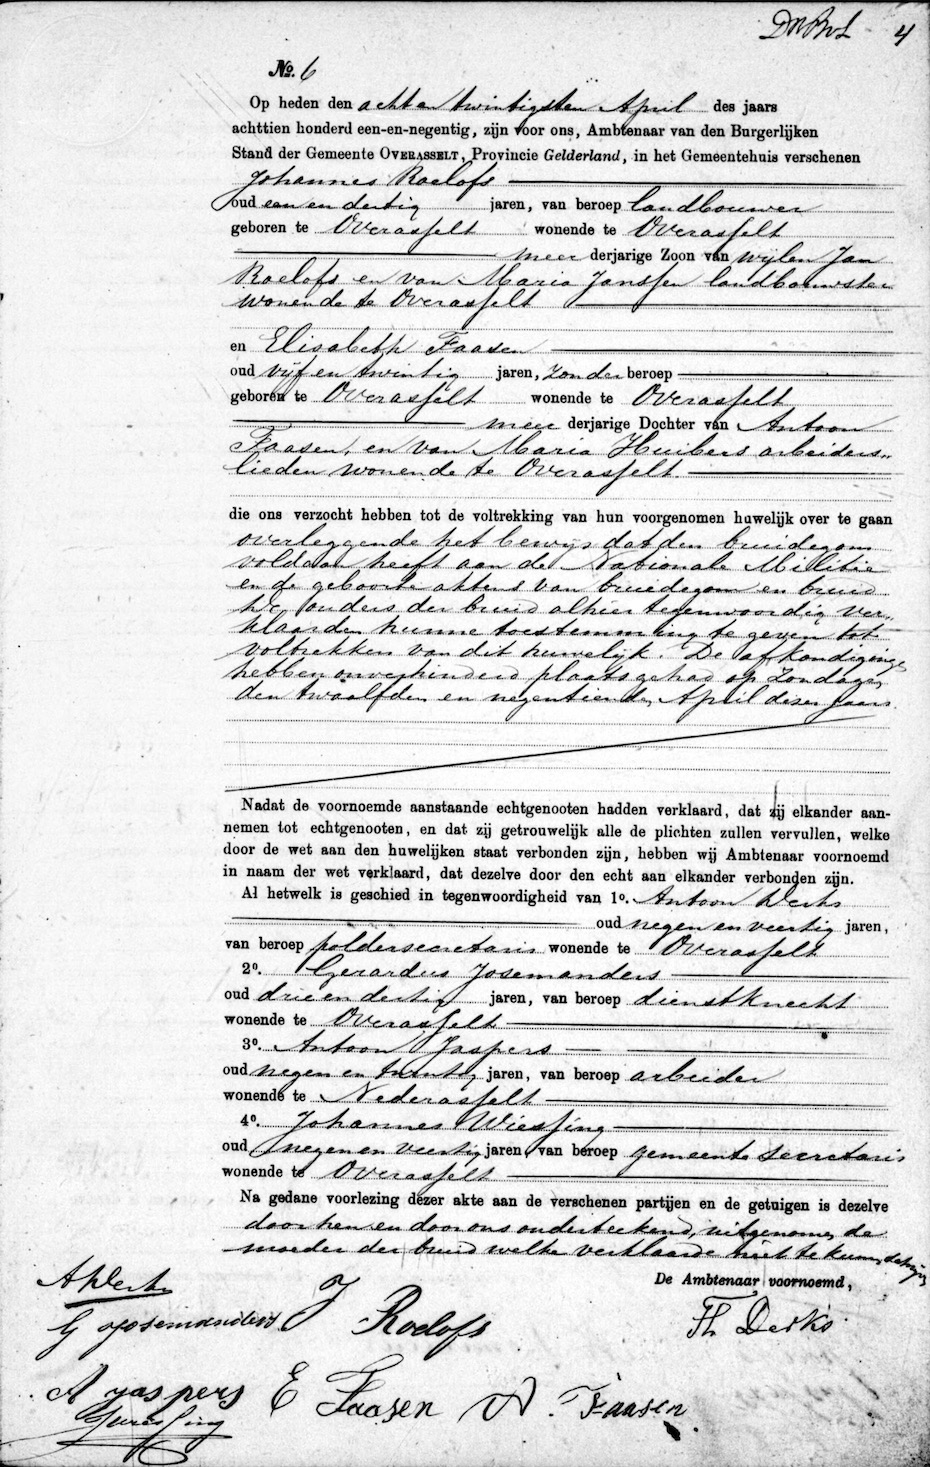 4
No. 6
Op heden den acht en twintigsten April des jaars
achttien honderd een-en-negentig, zijn voor ons, Ambtenaar van den Burgerlijken
Stand der Gemeente OVERASSELT, Provincie Gelderland, in het Gemeentehuis verschenen
Johannes Roelofs
oud een en dertig jaren, van beroep landbouwer
geboren te Overasselt wonende te Overasselt
meer derjarige Zoon van wijlen Jan
Roelofs en van Maria Janssen landbouwster
wonende te Overasselt
en Elisabeth Faasen
oud vijf en twintig jaren, zonder beroep
geboren te Overasselt wonende te Overasselt
meer derjarige Dochter van Antoon
Faasen, en van Maria Huibers arbeiders„
lieden wonende te Overasselt.
die ons verzocht hebben tot de voltrekking van hun voorgenomen huwelijk over te gaan
overleggende het bewijs dat den bruidegom
voldaan heeft aan de Nationale Militie
en de geboorte aktens van bruidegom en bruid
De ouders der bruid alhier tegenwoordig ver„
klaarden hunne toestemming te geven tot
voltrekken van dit huwelijk. De afkondigingen
hebben onverhinderd plaats gehad op Zondagen
den twaalfden en negentienden April dezes jaars.
Nadat de voornoemde aanstaande echtgenooten hadden verklaard, dat zij elkander aan-
nemen tot echtgenooten, en dat zij getrouwelijk alle de plichten zullen vervullen, welke
door de wet aan den huwelijken staat verbonden zijn, hebben wij Ambtenaar voornoemd
in naam der wet verklaard, dat dezelve door den echt aan elkander verbonden zijn.
Al hetwelk is geschied in tegenwoordigheid van 1o. Antoon Derks
oud negen en veertig jaren,
van beroep poldersecretaris wonende te Overasselt
2o. Gerardus Josemanders
oud drie en dertig jaren, van beroep dienstknecht
wonende te Overasselt
3o. Antoon Jaspers
oud negen en twintig jaren, van beroep arbeider
wonende te Nederasselt
4o. Johannes Wiessing
oud negen en veertig jaren, van beroep gemeente secretaris
wonende te Overasselt
Na gedane voorlezing dezer akte aan de verschenen partijen en de getuigen is dezelve
door hen en door ons onderteekend, uitgenomen de
moeder der bruid welke verklaarde niet te kunnen schrijven
De Ambtenaar voornoemd,
A Derks
G Josemanders J Roelofs Th Derks
A Jaspers E Faasen A. Faasen
Wiessing